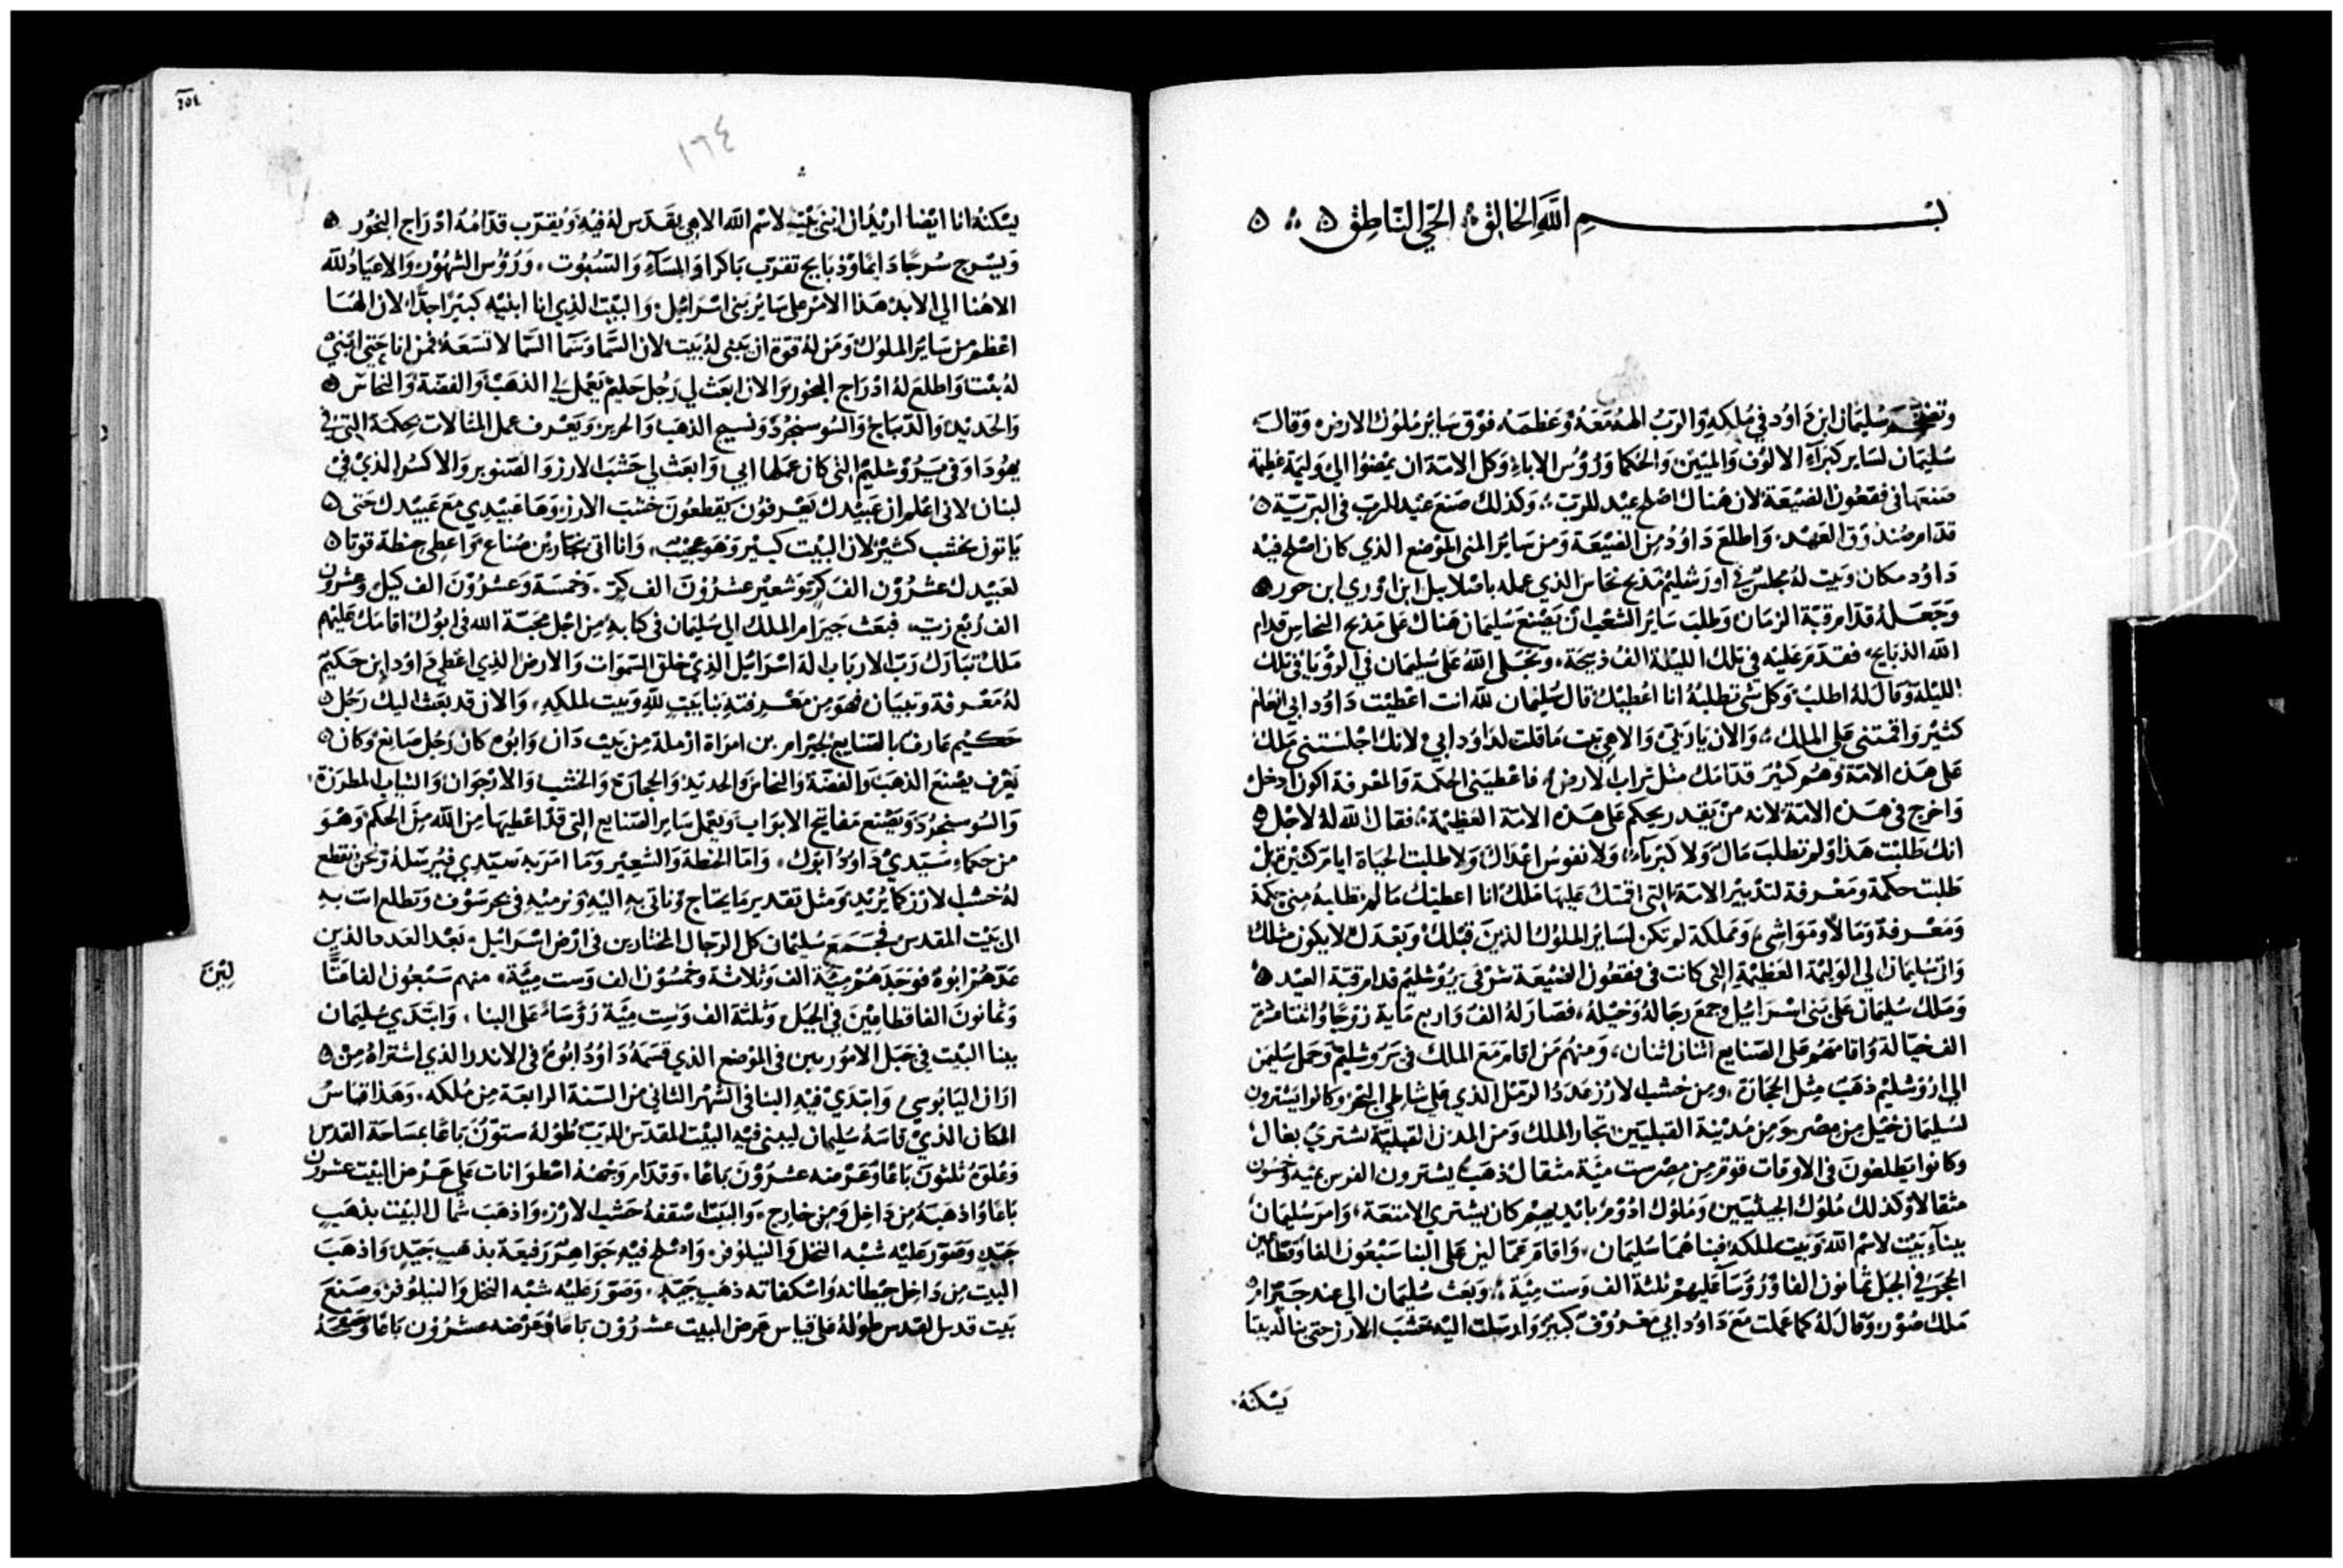 بسم الله الخالق الحي الناطق
وتضخم سليمان ابن داود في ملكه والرب الهه معه وعظمه فوق ساير ملوك الارض وقال
سليمان لساير كبرآء الالوف والميين والحكما وروس الاباء وكل الامة ان يمضوا الي وليمة عظيمة
صنعها في فقعون الضيعة لان هناك اصلح عيد للرب وكذلك صنع عبد الرب في البرية
قدام صندوق العهد واطلع داود من الضيعة ومن ساير المنى الموضع الذي كان اصلح فيه
داود مكان وبيت له مجلس في اورشليم مذبح نحاس الذي عمله باصلاييل ابن اوري ابن حور
وجعله قدام قبة الزمان وطلب ساير الشعب ان يصنع سليمان هناك على مذبح النحاس قدام
الله الذبايح فقدم عليه في تلك الليلة الف ذبيحة وتجلى الله على سليمان في الرؤيا في تلك
الليلة وقال له اطلب وكل شى تطلبه انا اعطيك قال سليمان لله انت اعطيت داود ابي انعام
كثير واقمتنى على الملك والان يا ربي والاهي ثبت ما قلت لداود ابي لانك اجلستني ملك
على هذه الامة وهم كثير قدامك مثل تراب الارض فاعطيني الحكمة والمعرفة اكون ادخل
واخرج في هذه الامة لانه من يقدر يحكم على هذه الامة العظيمة فقال الله له لاجل
انك طلبت هذا ولم تطلب مال ولا كبرياء ولا نفوس اعداك ولا طلبت الحياة ايام كثير بل
طلبت حكمة ومعرفة لتدبير الامة التي اقمتك عليها ملك انا اعطيك ما لم تطلبه مني حكمة
ومعرفة ومالا ومواشي ومملكة لم تكن لساير الملوك الذين قبلك وبعدك لا يكون مثلك
واتى سليمان الى الوليمة العظيمة التي كانت في فقعون الضيعة شرقي يروشليم قدام قبة العيد
وملك سليمان على بني اسرائيل وجمع رجاله وخيله فصار له الف واربع ماية زوجا واثنا عشر
الف خيالة واقامهم على الصنايع اثنان اثنان ومنهم من اقام مع الملك في يروشليم وحمل سليمن
الى اورشليم ذهب مثل الحجارة ومن خشب الارز عدد الرمل الذي على شاطي البحر وكانوا يشترون
لسليمان خيل من مصر ومن مدينة القبليين تجار الملك ومن المدن القبلية تشتري بغال
وكانوا يطلعون في الاوقات قوم من مصر ست مئة مثقال ذهب يشترون الفرس بميه وخمسون
مثقالا وكذلك ملوك الحيثيين وملوك ادوم بايديهم كان يشتري الامتعة وامر سليمان
ببنآء بيت لاسم الله وبيت لملكه فبناهما سليمان واقام عمالين على البنا سبعون الفا وقطاعين
الحجر في الجبل ثمانون الفا وروسا عليهم ثلثة الف وست مئة وبعث سليمان الى عند حيرام
ملك صور وقال له كما عملت مع داود ابي معروف كبير وارسلت اليه خشب الارز حتى بنا له بيتا
يسكنه
٢٥٤
١٦٤
يسكنه انا ايضا اريد ان ابني بيت لاسم الله الاهي يقدس له فيه ويقرب قدامه ادراج البخور
ويسرج سرجا دايما وذبايح تقرب باكرا والمسآء والسبوت وروس الشهور والاعياد لله
الاهنا الى الابد هذا الامر على ساير بني اسرائيل والبيت الذي انا ابنيه كبيرا جدا لان الهنا
اعظم من ساير الملوك ومن له قوة ان يبني له بيت لان السما وسما السما لا تسعه فمن انا حتى ابني
له بيت واطلع له ادراج البخور والان ابعث لي رجل حليم يعمل لي الذهب والفضة والنحاس
والحديد والديباج والسوسنجرد ونسيج الذهب والحرير ويعرف عمل المثالات بحكمة التي في
يهودا وفي يروشليم التي كان عملها ابي وابعث لي خشب الارز والصنوبر والاكسر الذي في
لبنان لاني اعلم ان عبيدك يعرفون يقطعون خشب الارز وها عبيدي مع عبيدك حتى
ياتون بخشب كثير لان البيت كبير وهو عجيب وانا اتى بنجارين صناع واعطي حنطة قوتا
لعبيدك عشرون الف كر وشعير عشرون الف كر وخمسة وعشرون الف كيل وعشرون
الف ربع زيت فبعث حيرام الملك الى سليمان في كتابه من اجل محبة الله في ابوك اقامك عليهم
ملك تبارك رب الارباب اله اسرائيل الذي خلق السموات والارض الذي اعطى داود ابن حكيم
له معرفة وتبيان فهو من معرفته بنا بيت لله وبيت لملكه والان قد بعثت اليك رجل
حكيم عارف بالصنايع لحيرام بن امراة ارملة من بيت دان وابوه كان رجل صانع وكان
يعرف يصنع الذهب والفضة والنحاس والحديد والحجارة والخشب والارجوان والثياب المطرزة
والسوسنجرد ويصنع مفاتيح الابواب ويعمل ساير الصنايع التي قد اعطيها من الله من الحكم وهو
من حكماء سيدي داود ابوك واما الحنطة والشعير وما امر به سيدي فيرسله ونحن نقطع
له خشب الارز كما يريد ومثل تقدير ما يحتاج وناتي به اليه ونرميه في بحر سوف وتطلع انت به
الى بيت المقدس فجمع سليمان كل الرجال المختارين في ارض اسرائيل بعد العدد الذين
عدهم ابوه فوجدهم مئة الف وثلاثة وخمسون الف وست مئة منهم سبعون الفا فتا
لين
وثمانون الفا قطاعين في الجبل وثلثة الف وست مئة رؤساء على البنا وابتدي سليمان
ببنا البيت في جبل الاموريين في الموضع الذي قسمه داود ابوه في الاندر الذي اشتراه من
اران اليابوسي وابتدي فيه البنا في الشهر الثاني من السنة الرابعة من ملكه وهذا قياس
المكان الذي قاسه سليمان ليبني فيه البيت المقدس للرب طوله ستون باعا بمساحة القدس
وعلوه ثلثون باعا وعرضه عشرون باعا وقدام وجهه اصطوانات على عرض البيت عشرون
باعا واذهبه من داخل ومن خارج والبيت اسقفه خشب الارز واذهب شمال البيت بذهب
جيد وصور عليه شبه النخل والنيلوفر واصلح فيه جواهر رفيعة بذهب جيد واذهب
البيت من داخل حيطانه واسكفاته ذهب جيد وصور عليه شبه النخل والنيلوفر وصنع
بيت قدس القدس طوله على قياس عرض البيت عشرون باعا وعرضه عشرون باعا وصفحه